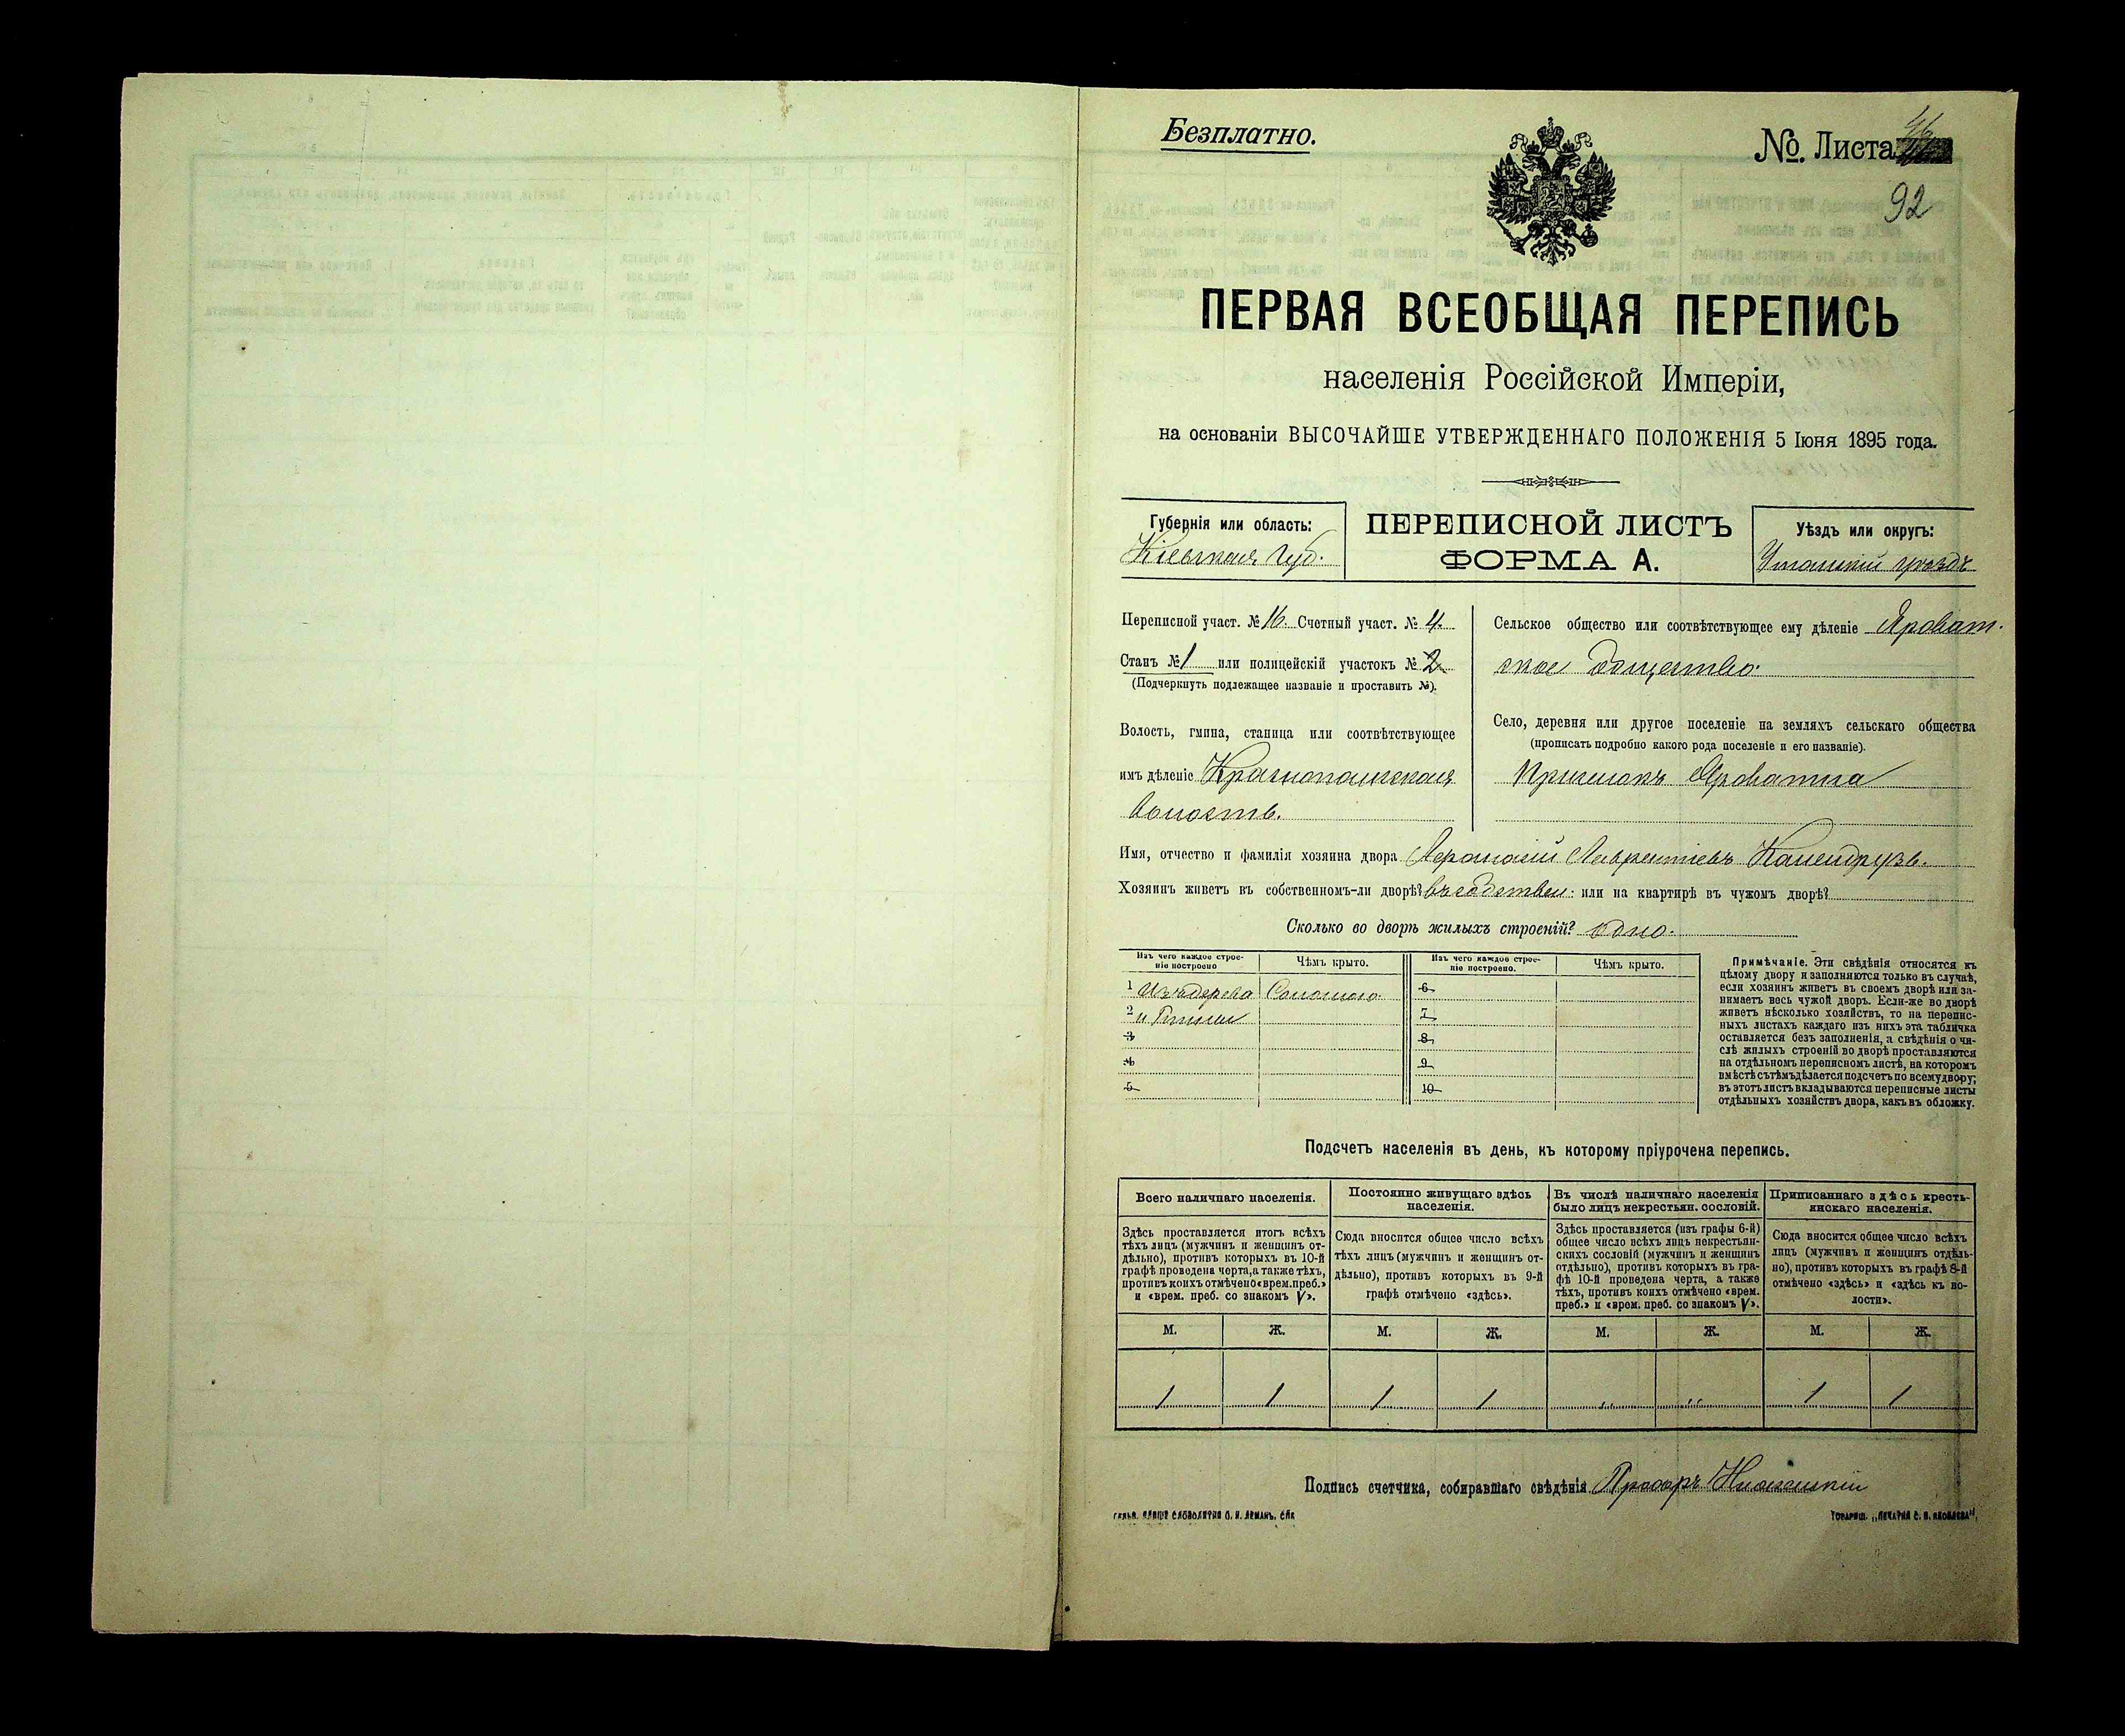 Безплатно.
№. Листа 46
92
ПЕРВАЯ ВСЕОБЩАЯ ПЕРЕПИСЬ
населенія Россійской Имперіи,
на основаніи ВЫСОЧАЙШЕ УТВЕРЖДЕННАГО ПОЛОЖЕНІЯ 5 Іюня 1895 года.
Губернія или область:
Кіевская Губ.
ПЕРЕПИСНОЙ ЛИСТЪ
ФОРМА А.
Уѣздъ или округъ:
Уманскій уѣздъ
Переписной участ. № 16. Счетный участ. № 4.
Станъ № 1 или полицейскій участокъ № 2
(Подчеркнуть подлежащее названіе и проставить №).
Волость, гмина, станица или соотвѣтствующее
имъ дѣленіе Краснопольская
волость.
Сельское общество или соотвѣтствующее ему дѣленіе Яроват-
ское общество.
Село, деревня или другое поселеніе на земляхъ сельскаго общества
(прописать подробно какого рода поселеніе и его названіе).
Яроватка
Имя, отчество и фамилія хозяина двора Афанасій Лаврентіевъ
Хозяинъ живетъ въ собственномъ-ли дворѣ? въ собствен. или на квартирѣ въ чужомъ дворѣ?
Сколько во дворѣ жилыхъ строеній? одно.
Изъ чего каждое строе-
ніе построено
Чѣмъ крыто.
Изъ чего каждое строе-
ніе построено.
Чѣмъ крыто.
1 Изъ дерева Соломою 6
2 и Глины 7
3 8
4 9
5 10
Примѣчаніе. Эти свѣдѣнія относятся къ
цѣлому двору и заполняются только въ случаѣ,
если хозяинъ живетъ въ своемъ дворѣ или за-
нимаетъ весь чужой дворъ. Если-же во дворѣ
живетъ нѣсколько хозяйствъ, то на перепис-
ныхъ листахъ каждаго изъ нихъ эта табличка
оставляется безъ заполненія, а свѣдѣнія о чи-
слѣ жилыхъ строеній во дворѣ проставляются
на отдѣльномъ переписномъ листѣ, на которомъ
вмѣстѣ съ тѣмъ дѣлается подсчетъ по всему двору;
въ этотъ листъ вкладываются переписные листы
отдѣльныхъ хозяйствъ двора, какъ въ обложку.
Подсчетъ населенія въ день, къ которому пріурочена перепись.
Всего наличнаго населенія.
Здѣсь проставляется итогъ всѣхъ
тѣхъ лицъ (мужчинъ и женщинъ от-
дѣльно), противъ которыхъ въ 10-й
графѣ проведена черта, а также тѣхъ,
противъ коихъ отмѣчено «врем. преб.»
и «врем. преб. со знакомъ V».
Постоянно живущаго здѣсь
населенія.
Сюда вносится общее число всѣхъ
тѣхъ лицъ (мужчинъ и женщинъ от-
дѣльно), противъ которыхъ въ 9-й
графѣ отмѣчено «здѣсь».
Въ числѣ наличнаго населенія
было лицъ некрестьян. сословій.
Здѣсь проставляется (изъ графы 6-й)
общее число всѣхъ лицъ некрестьян-
скихъ сословій (мужчинъ и женщинъ
отдѣльно), противъ которыхъ въ гра-
фѣ 10-й проведена черта, а также
тѣхъ, противъ коихъ отмѣчено «врем.
преб.» и «врем. преб. со знакомъ V».
Приписаннаго здѣсь кресть-
янскаго населенія.
Сюда вносится общее число всѣхъ
лицъ (мужчинъ и женщинъ отдѣль-
но), противъ которыхъ въ графѣ 8-й
отмѣчено «здѣсь» и «здѣсь къ во-
лости».
М. Ж. М. Ж. М. Ж. М. Ж.
1 1 1 1 " " 1 1
Подпись счетчика, собиравшаго свѣдѣнія